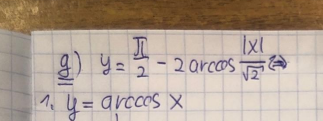 g) y = π/2 - 2 arccos |x|/√2 ⇔
1. y = arccos x